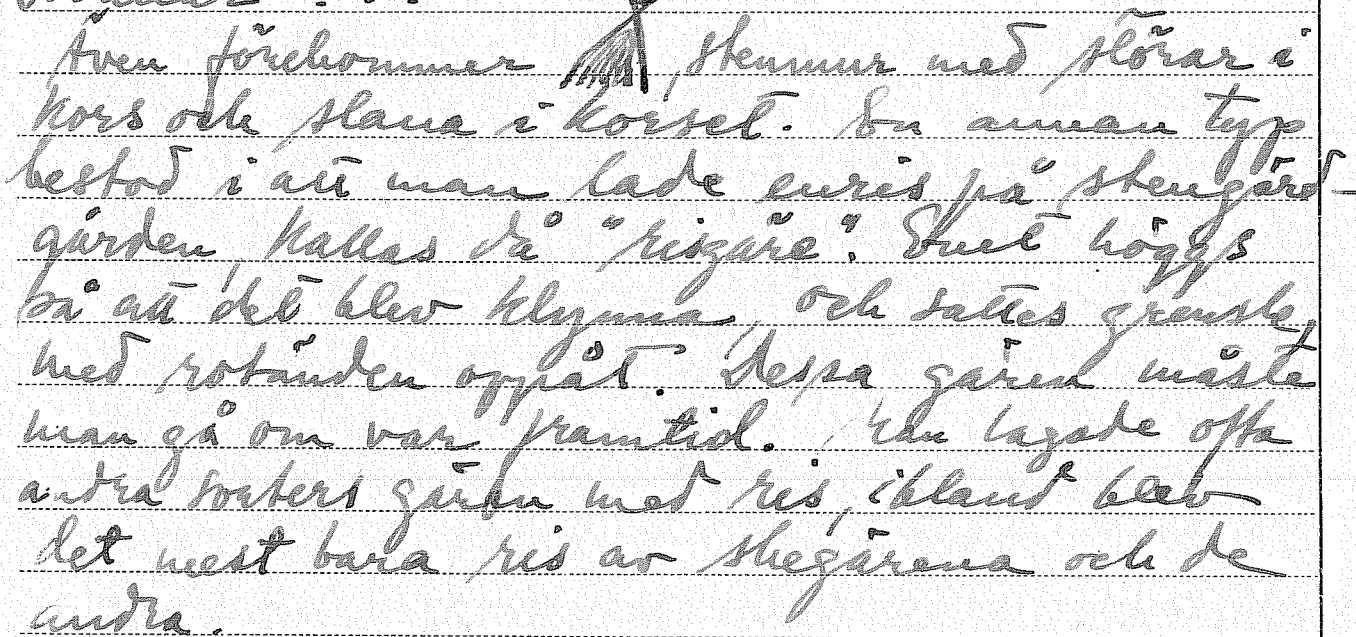 Även förekommer stenmur med störar i
kors och slana i korset. En annan typ
bestod i att man lade enris på stengärd-
gården, kallas då "risgäre". Enet höggs
så att det blev klynna, och sattes grensle,
med rotändan oppåt. Dessa gären måste
man gå om var framtid. Man lagade ofta
andra sorters gären med ris, ibland blev
det mest bara ris av skegärena och de
andra.